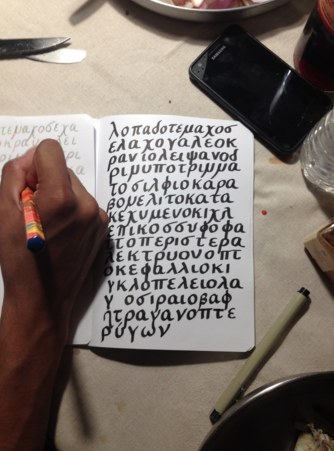 τεμαχοσεχα
λοπαδοτεμαχοσ
ελαχογαλεοκ
ρανιολειψανοδ
ριμυποτριμμα
τοσιλφιοκαρα
βομελιτοκατα
κεχυμενοκιχλ
επικοσσυφοφα
ττοπεριστερα
λεκτρυονοπτ
οκεφαλλιοκι
γκλοπελειολα
γ οσιραιοβαφ
ητραγανοπτε
ρυγων